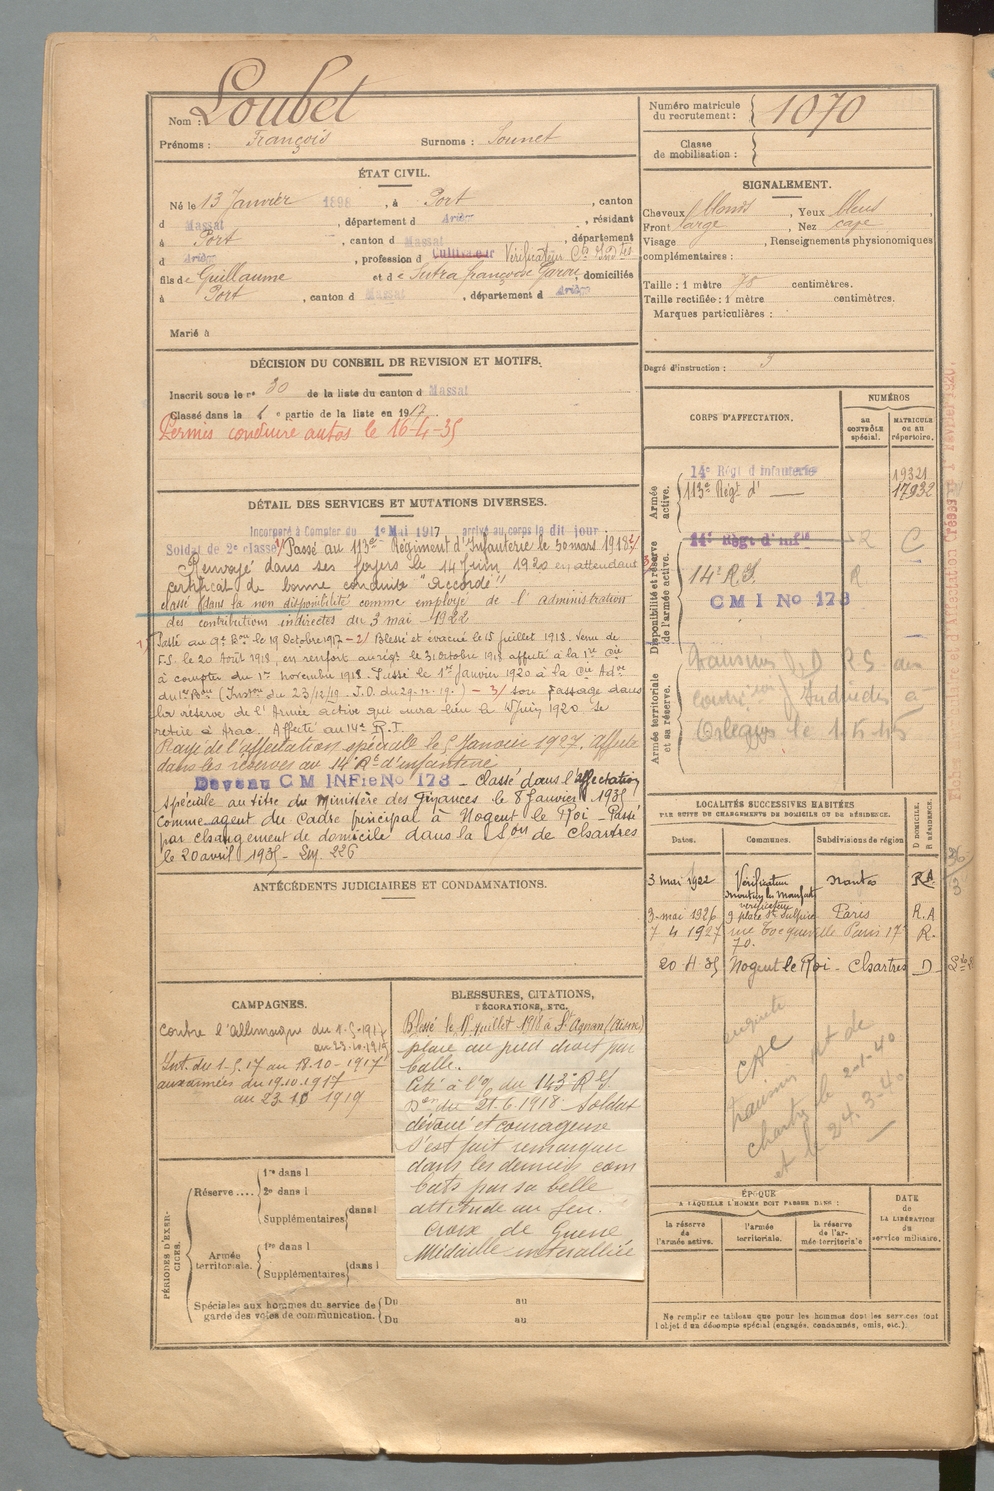 Nom : Loubet
Prénoms : François Surnoms : Sounet
ÉTAT CIVIL.
Né le 13 Janvier 1898, à Port, canton
d Massat, département d Ariège, résidant
à Port, canton d Massat, département
d Ariège, profession d Cultivateur Vérificateur Cons Indtes
fils de Guillaume et de Sutra françoise Garou, domiciliés
à Port, canton d Massat, département d Ariège
Marié à
DÉCISION DU CONSEIL DE REVISION ET MOTIFS.
Inscrit sous le no 30 de la liste du canton d Massat
Classé dans la 1 e partie de la liste en 1917.
Permis conduire autos le 16-4-35
DÉTAIL DES SERVICES ET MUTATIONS DIVERSES.
Incorporé à Compter du 1e Mai 1917 arrivé au corps le dit jour
Soldat de 2e classe 1/ Passé au 113e Régiment d'Infanterie le 30 mars 1918 2/
Renvoyé dans ses foyers le 14 Juin 1920 en attendant
certificat de bonne conduite "Accordé"
classé dans la non disponibilité comme employé de l'administration
des contributions indirectes du 3 mai 1922
1) Passé au 9e Bon le 19 Octobre 1917 – 2/ Blessé et évacué le 15 juillet 1918. Venu de
F.S. le 20 Août 1918, en renfort au régt le 31 octobre 1918 affecté à la 1re Cie
à compter du 1er novembre 1918. Passé le 1er Janvier 1920 à la Cie Adve
du 1er Bon (Instron du 23/12/19 J.O. du 29.12.19.) – 3/ son passage dans
la réserve de l'Armée active qui aura lieu le 4 Juin 1920 Se
retire à Arac. Affecté au 14e R.I.
Rayé de l'affectation spéciale le 5 Janvier 1927. Affecté
dans les réserves au 14e Rt d'infanterie
Devenu C M INFie No 173 – Classé dans l'affectation
spéciale au titre du Ministère des Finances le 8 Janvier 1935
comme agent du Cadre principal à Nogent le Roi – Passé
par changement de domicile dans la Son de Chartres
le 20 avril 1935 – 226
ANTÉCÉDENTS JUDICIAIRES ET CONDAMNATIONS.
CAMPAGNES.
Contre l'Allemagne du 1-5-1917
au 23-10-1919
Int. du 1-5-17 au 18-10-1917
aux armées du 19.10.1917
au 23 10 1919
BLESSURES, CITATIONS,
DÉCORATIONS, ETC.
Blessé le 15 juillet 1918 à St Agnan (Aisne)
plaie au pied droit par
balle.
Cité à l'o/ du 143e R I.
Don du 21.6.1918. Soldat
dévoué et courageux
s'est fait remarquer
dans les derniers com
bats par sa belle
attitude au feu.
Croix de Guerre
Médaille interalliée
PÉRIODES D'EXER-
CICES.
Réserve ....
1re dans l
2e dans l
Supplémentaires dans l
Armée
territoriale.
1re dans l
Supplémentaires dans l
Spéciales aux hommes du service de
garde des voies de communication.
Du au
Du au
Numéro matricule
du recrutement : 1070
Classe
de mobilisation :
SIGNALEMENT.
Cheveux blonds, Yeux bleus,
Front large, Nez cave
Visage , Renseignements physionomiques
complémentaires :
Taille : 1 mètre 78 centimètres.
Taille rectifiée : 1 mètre centimètres.
Marques particulières :
Degré d'instruction : 3
CORPS D'AFFECTATION.
NUMÉROS
AU
CONTRÔLE
spécial.
MATRICULE
OU AU
répertoire.
Armée
active.
14e Régt d infanterie 19321
113e Régt d' — 17932
Disponibilité et réserve
de l'armée active.
14e Régt d'infie R C
14e R.I. R
C M I No 173
Armée territoriale
et sa réserve.
transmis D R.S. des
Indirectes à
le 1-5-45
LOCALITÉS SUCCESSIVES HABITÉES
PAR SUITE DE CHANGEMENTS DE DOMICILE OU DE RÉSIDENCE.
Dates. Communes. Subdivisions de région
D DOMICILE.
R RÉSIDENCE.
3 mai 1922 Vérificateur Nantes RA
3-mai 1926 vérificateur 9 place St Sulpice Paris R.A
7 4 1927 rue Tocqueville Paris 17e R.
70.
20 4 35 Nogent le Roi - Chartres D
C A C
transmis de
chartres le 2-1-40
et le 24.3-40
ÉPOQUE
A LAQUELLE L'HOMME DOIT PASSER DANS :
la réserve
de
l'armée active.
l'armée
territoriale.
la réserve
de l'ar-
mée territoriale
DATE
de
LA LIBÉRATION
du
service militaire.
Ne remplir ce tableau que pour les hommes dont les services font
l'objet d'un décompte spécial (engagés, condamnés, omis, etc.).